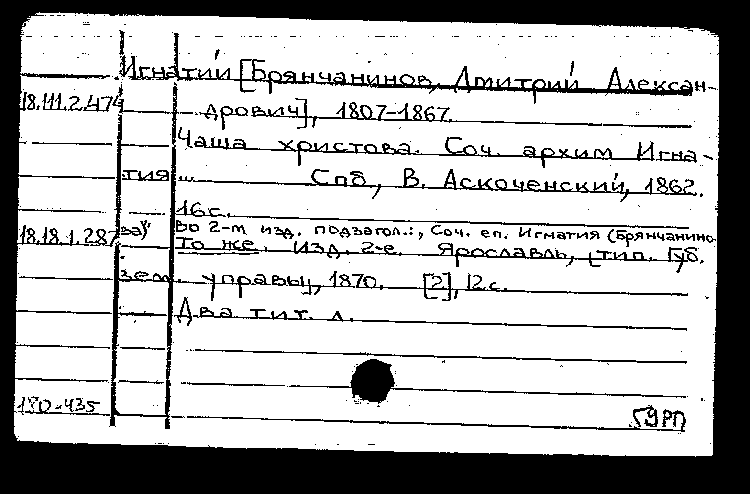 Игнатий [Брянчанинов, Дмитрий Алексан-
18.111.2.474 дрович], 1807-1867.
Чаша христова. Соч. архим Игна-
тия... Спб, В. Аскоченский, 1862.
16с.
Во 2-м изд. подзагол.:, Соч. еп. Игматия (Брянчанино-
18.18.1.287 ва)"
То же. Изд. 2-е. Ярославль, [тип. Губ.
зем. управы], 1870. [2], 12 с.
Два тит. л.
180-435 59РП